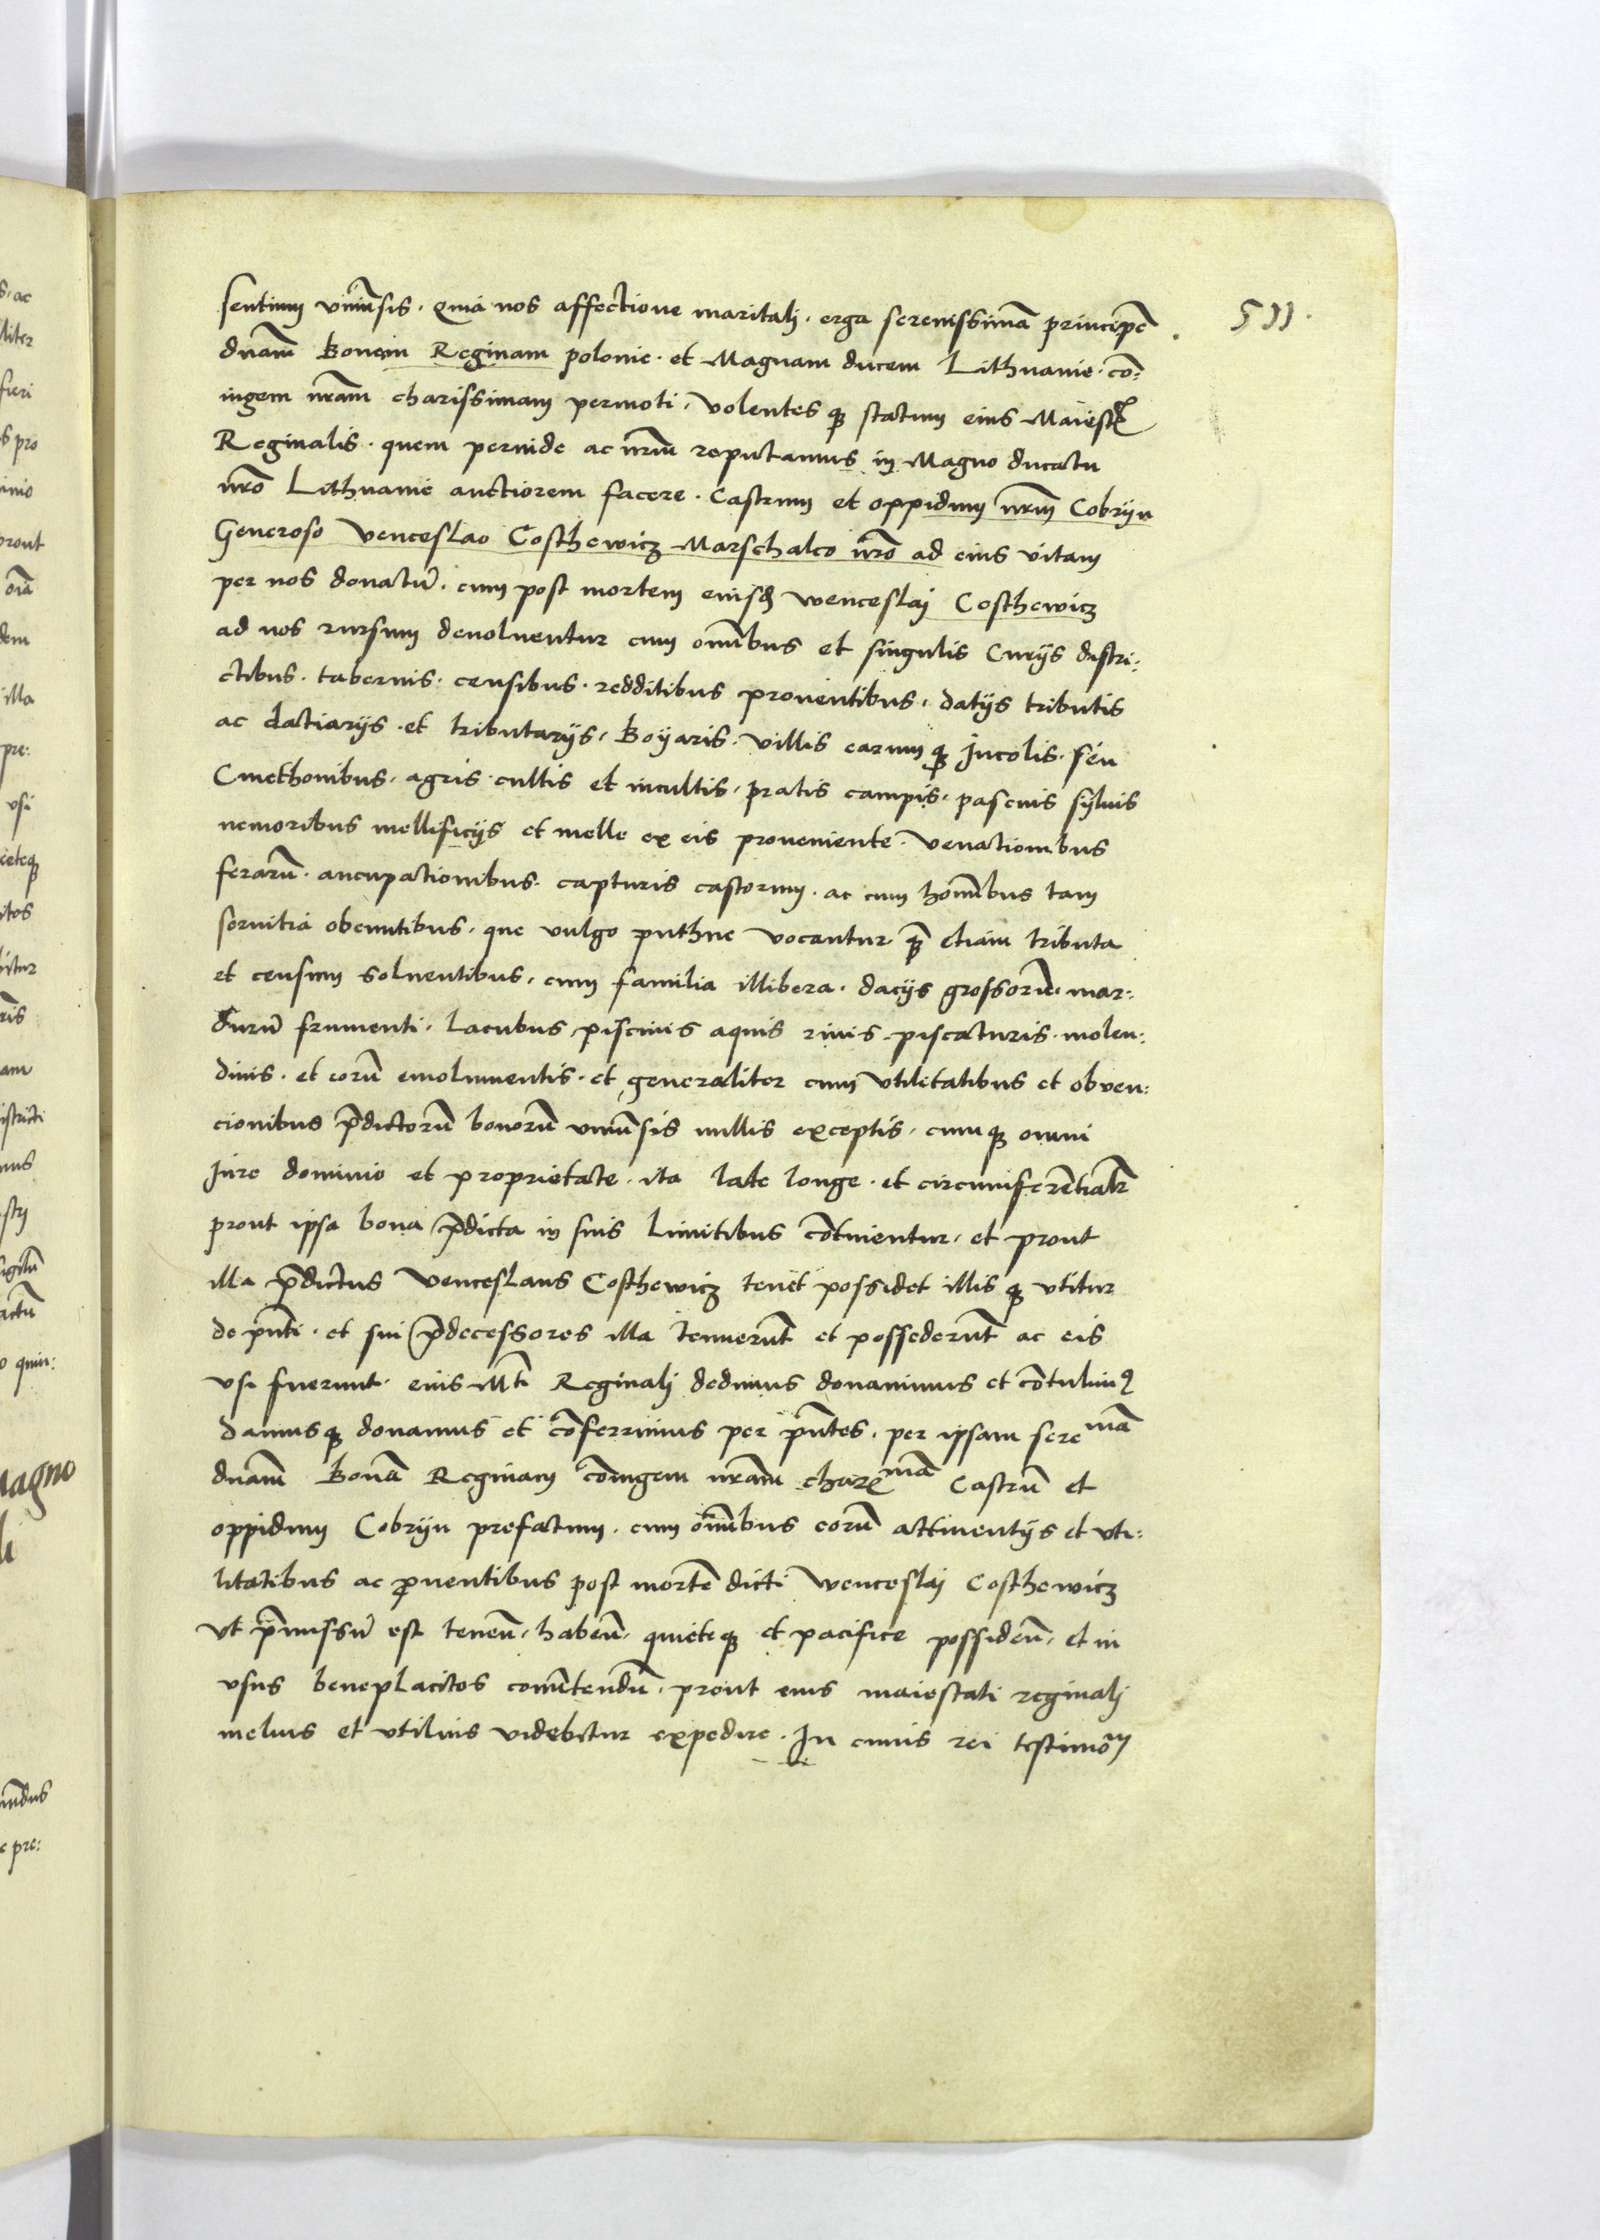 511.
sentium vniūsis. Quia nos affectione maritali. erga serenissimā principē
dnām Bonam Reginam polonie. et Magnam ducem Lithuanie. cō:
iugem nrām charissimam permoti. Volentesq̨ statum eius Maiestꝭ
Reginalis. quem perinde ac nrūm reputamus in Magno ducatu
nrō Lithuanie auctiorem facere. Castrum et oppidum nrūm Cobryn
Generoso Venceslao Costhewicz Marschalco nrō ad eius vitam
per nos donatū. cum post mortem eiusdē Wenceslaj Costhewicz
ad nos rursum deuoluentur cum omībus et singulis Curijs distri:
ctibus. tabernis. censibus. redditibus prouentibus. datijs tributis
ac datiarijs. et tributarijs. Boyaris. villis earumq̨ Incolis. seu
Cmethonibus. agris cultis et incultis. pratis campis. pascuis syluis
nemoribus mellificijs et melle ex eis proueniente. venationibus
ferarū. aucupationibus. capturis castorum. ac cum homībus tam
seruitia obeuntibus. que vulgo puthne vocantur q̄ etiam tributa
et censum soluentibus. cum familia illibera. dacijs grossorū. mar:
durū frumenti. lacubus piscinis aquis riuis piscaturis. molen:
dinis. et eorū emolumentis. et generaliter cum vtilitatibus et obuen:
cionibus p̄dictorū bonorū vniūsis nullis exceptis. cumq̨ omni
Iure dominio et proprietate. ita late longe. et circumferētialr̄
prout ipsa bona p̄dicta in suis Limitibus cōtinentur. et prout
illa p̄dictus Venceslaus Costhewicz tenet possidet illisq̨ vtitur
de pn̄ti. et sui p̄decessores illa tenuerūt et possederūt ac eis
vsi fuerunt. eius Mti Reginalj dedimus donauimus et cōtulimꝰ
damusq̨ donamus et cōferrimus per pn̄tes. per ipsam sere mā
dnām Bonā Reginam cōiugem nrām charꝭmā Castrū et
oppidum Cobryn prefatum. cum omībus eorū attinentijs et vti:
litatibus ac ꝓuentibus post mortē dicti Wenceslaj Costhewicz
vt p̄missū est tenēn. habēn. quieteq̨ et pacifice possidēn. et in
vsus beneplacitos comītendū. prout eius maiestati reginalj
melius et vtilius videbitur expedire. In cuius rei testimōm